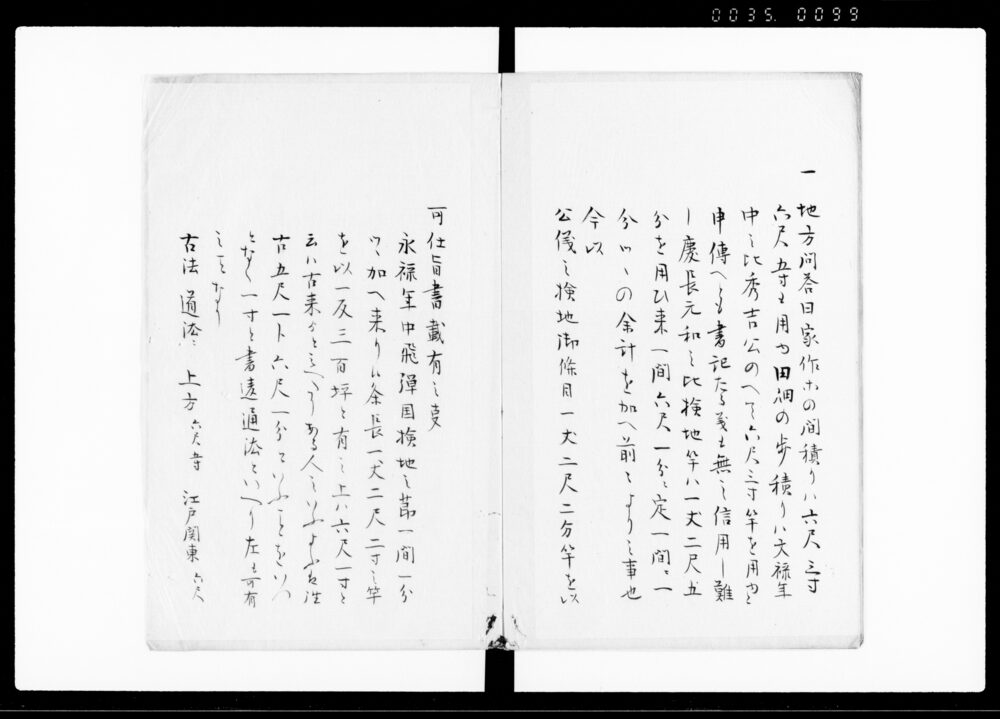 0035.0099
一 地方問答曰家作ホの間積りハ六尺三寸
六尺五寸も用田畑の歩積りハ文禄年
中之比秀吉公のへ六尺三寸竿を用
申傳へとも書記たる義も無之信用し難
し慶長元和之比検地竿ハ一丈二尺五
分を用ひ来一間六尺一分定一間一
分ツヽの余計を加へ前よりの事也
今以
公儀之検地御條目一丈二尺二分竿を以
可仕旨書載有之
永禄年中飛彈国検地之節一間一分
ツヽ加へ来り条長一丈二尺二寸之竿
を以一反三百坪と有之上ハ六尺一寸と
云ハ古来ある人
古五尺一 六尺一分ことをいつ
となく一寸と書 通法といへり左も可有
ことなり
古法 道法 上方六尺五寸 江戸関東六尺